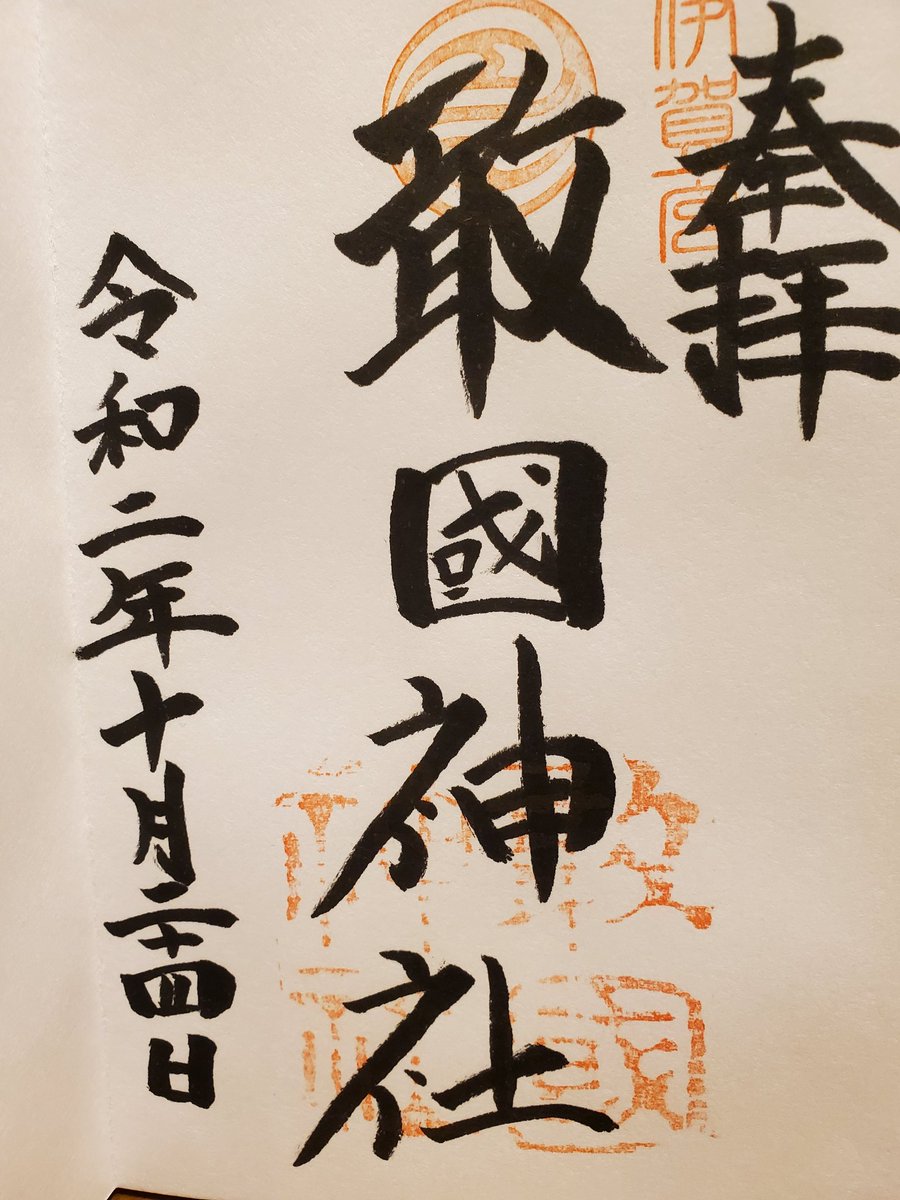 奉拝
伊賀一宮
敢國神社
令和二年十月二十四日